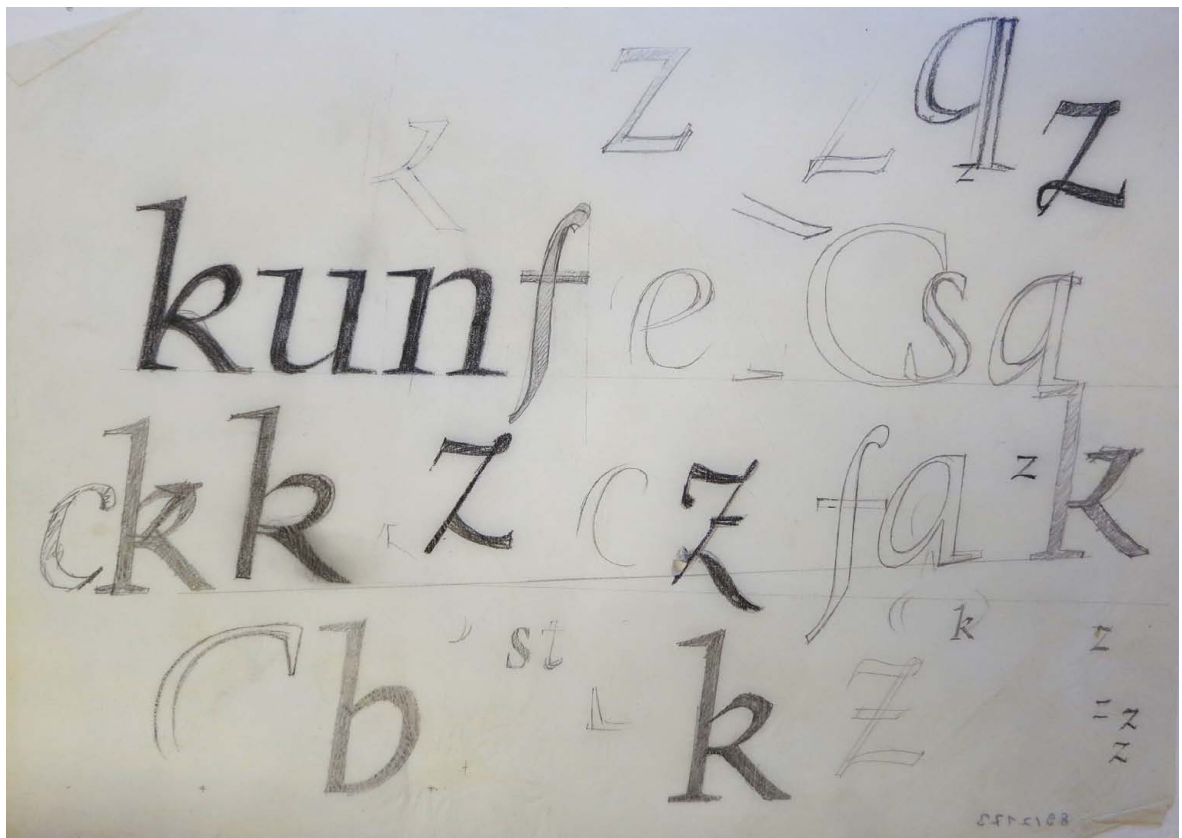 k z z q z
z
kunf e C s a
ckk z c z f a z k
k
C b st k z z
z
z